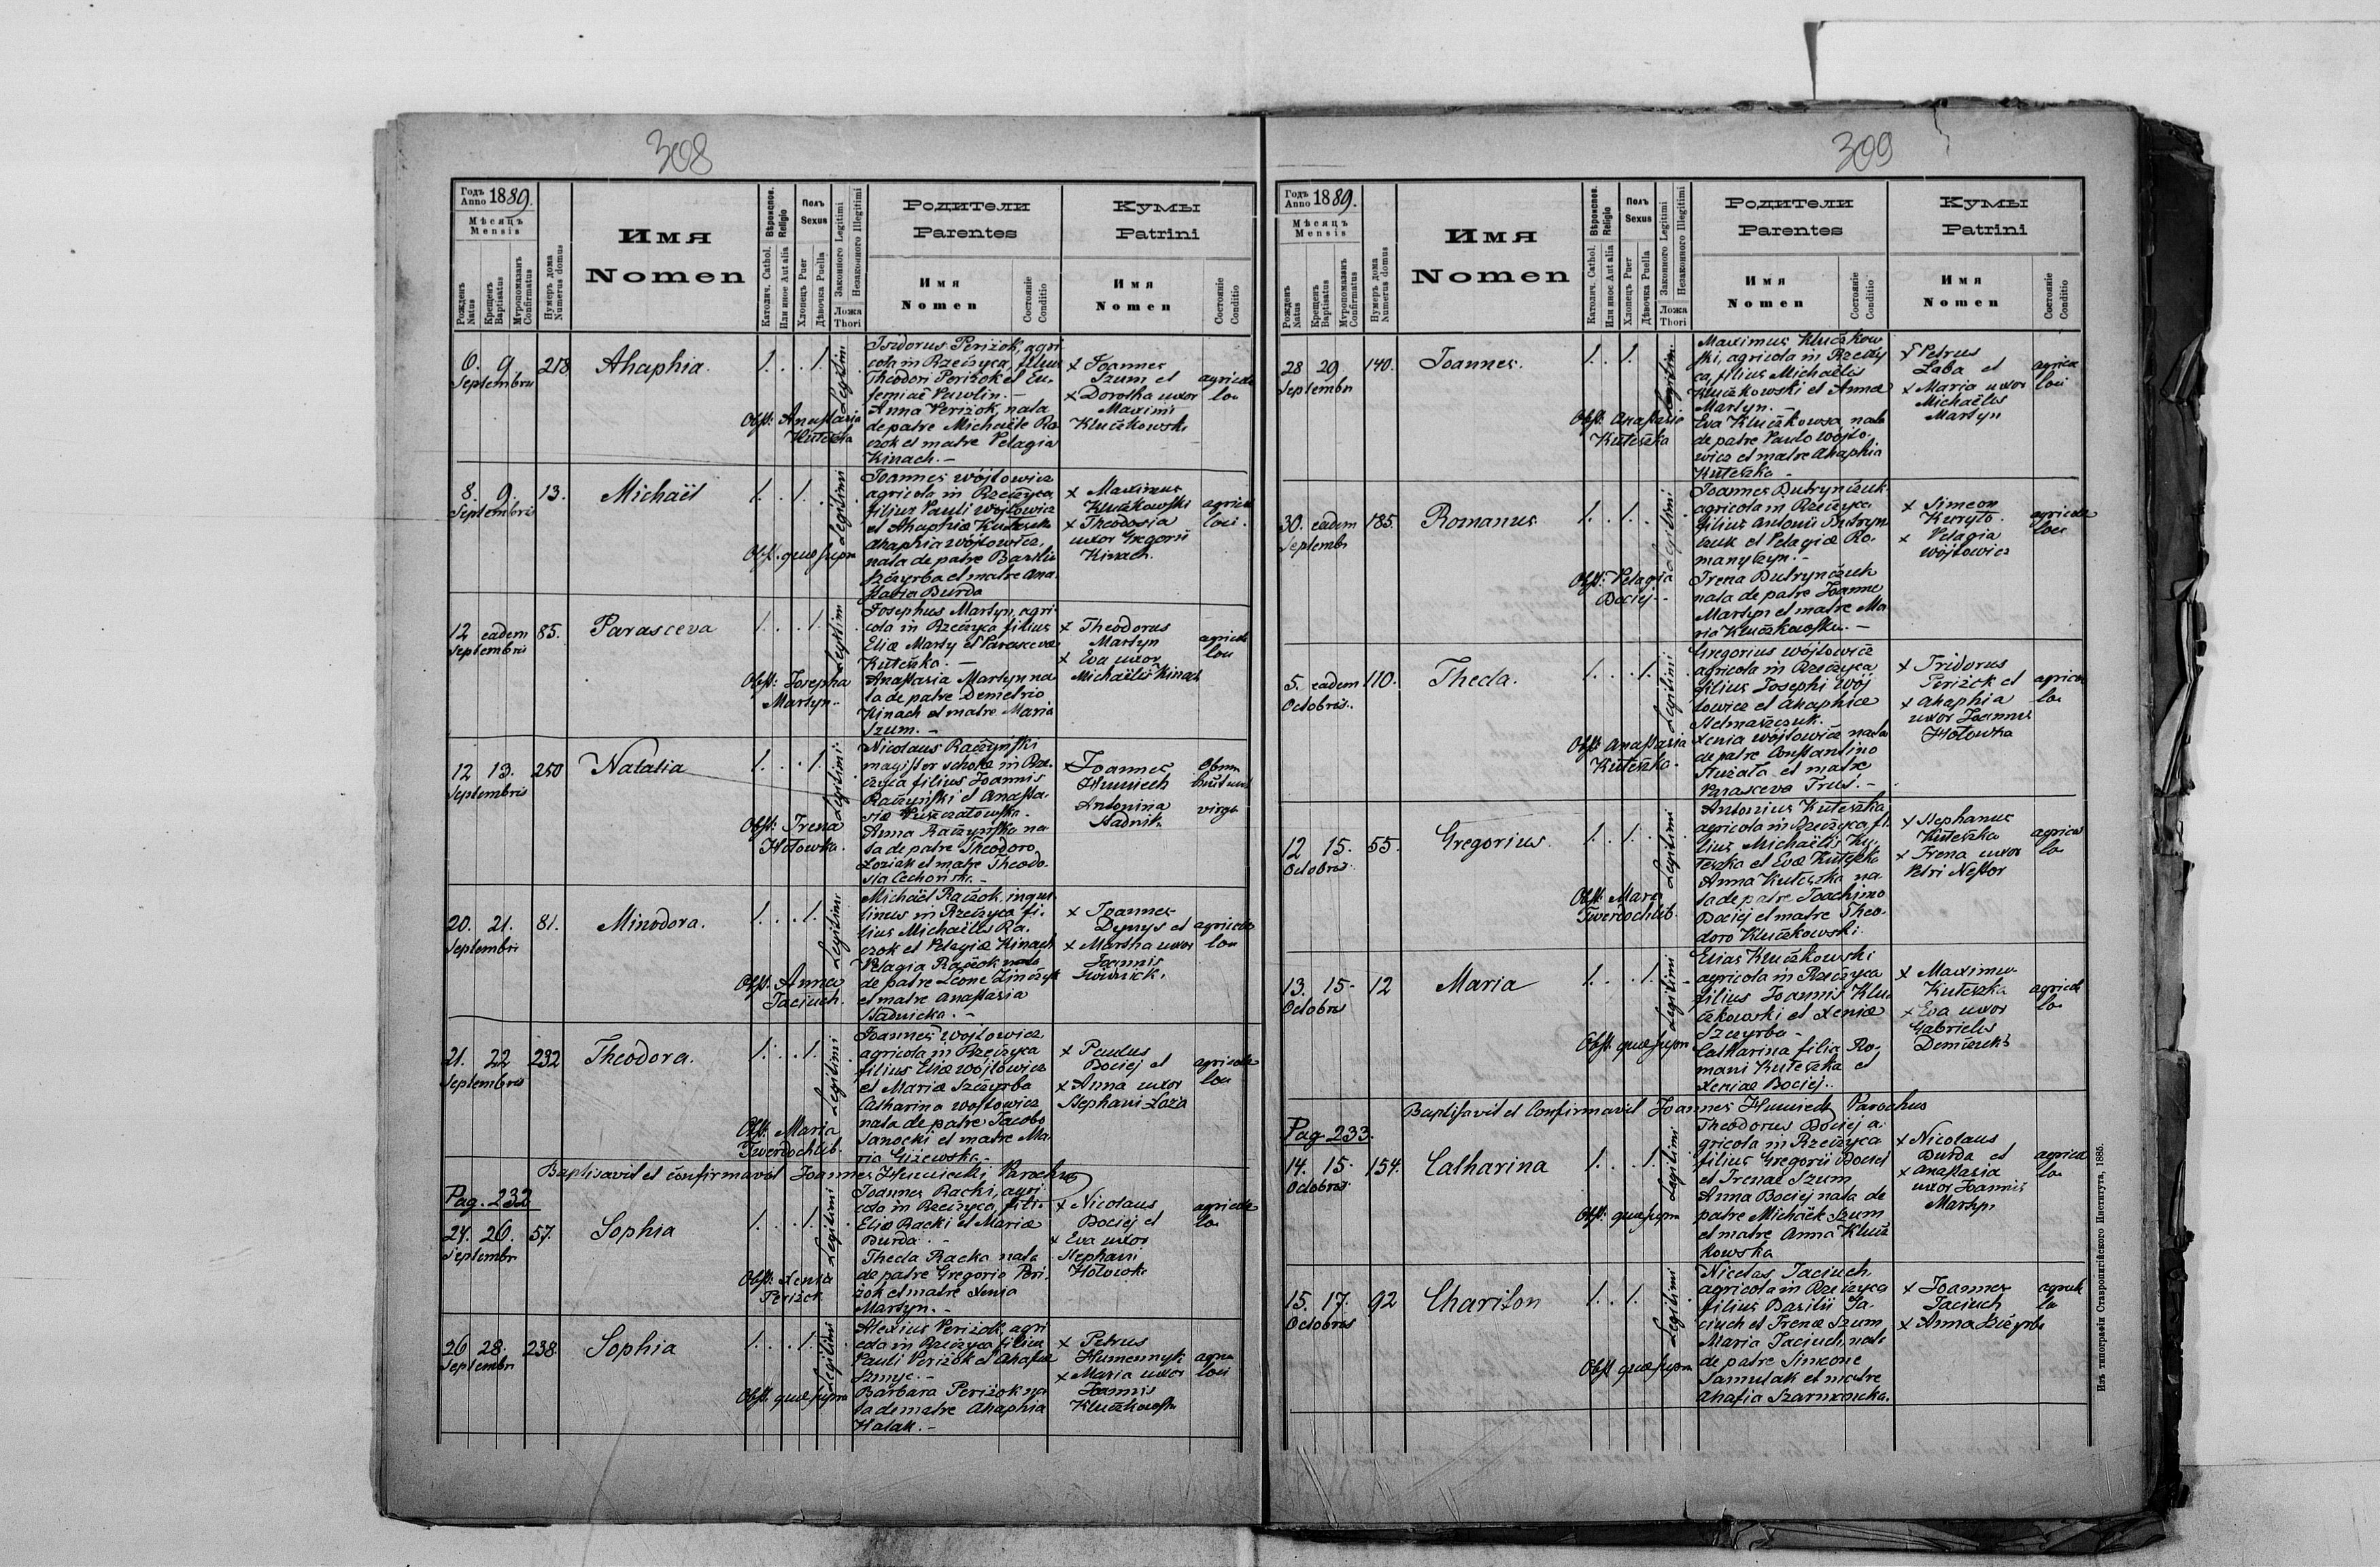 308
Годъ Anno 1889.
Мѣсяцъ Mensis
Рожденъ Natus
Крещенъ Baptisatus
Мѵропомазанъ Confirmatus
Нумеръ дома Numerus domus
Имя
Nomen
Вѣроиспов. Religio
Католич. Cathol.
Или иное Aut alia
Полъ Sexus
Хлопецъ Puer
Дѣвочка Puella
Законного Legitimi
Незаконного Illegitimi
Ложа Thori
Родители
Parentes
Имя
Nomen
Состояніе Conditio
Кумы
Patrini
Имя
Nomen
Состояніе Conditio
6. 9. 218 Ahaphia. 1. 1.
Septembris
Obst: Anastasia
Kuteszka
Isidorus Periżok, agri-
cola in Rzeczyca, filius
Theodori Periżok et Eu-
femiae Pawlin.-
Anna Periżok, nata
de patre Michaële Ra-
czok et matre Pelagia
Kinach.-
x Joannes
Szum et
x Dorotha uxor
Maximi
Kluczkowski
agricolae
loci
8. 9. 13. Michaël 1. 1.
Septembris
Legitimi
Obst. quae supra
Joannes Wójtowicz
agricola in Rzeczyca
filius Pauli Wojtowicz
et Ahaphiae Kuteszka
Ahaphia Wójtowicz,
nata de patre Basilio
Szczyrba et matre Ana-
stasia Burda
x Maximus
Kluczkowski
x Theodosia
uxor Gregorii
Kinach.
agricolae
loci.
12 eadem 85. Parasceva 1. 1.
Septembris
Legitimi
Obst: Josepha
Martyn.
Josephus Martyn, agri-
cola in Rzeczyca filius
Eliae Marty et Parascevae
Kuteszka.-
Anastasia Martyn na-
ta de patre Demetrio
Kinach et matre Maria
Szum.-
x Theodorus
Martyn
x Eva uxor
Michaëlis Kinach
agricolae
loci
12 13. 250 Natalia 1. 1.
Septembris
Legitimi
Obst: Irena
Hołowka.
Nicolaus Raczyński
magister scholae in Rze-
czyca filius Joannis
Raczyński et Anasta-
siae
Anna Raczyńska na-
ta de patre Theodoro
Łoziak et matre Theodo-
sia
x Joannes
Humiech
Antonina
Hadnik
virgo
20. 21. 81. Minodora. 1. 1.
Septembris
Legitimi
Obst. Anna
Taciuch.
Michaël Raczok, inqui-
linus in Rzeczyca fi-
lius Michaëlis Ra-
czok et Pelagiae Kinach
Pelagia Raczok nata
de patre Leone
et matre Anastasia
Hadnicka.-
x Joannes
Dynys et
x Martha uxor
Joannis
agricolae
loci
21. 22 232 Theodora. 1. 1.
Septembris
Legitimi
Obst: Maria
Twerdochlib.
Joannes Wojtowicz,
agricola in Rzeczyca
filius Eliae Wójtowicz
et Mariae Szczyrba
Catharina Wojtowicz
nata de patre Jacobo
Janocki et matre Ma-
ria Giżewska.-
x Paulus
Bociej et
x Anna uxor
Stephani Łoza
agricolae
loci
Baptisavit et confirmavit Joannes Humiecki Parochus
Pag. 232
24. 26. 57. Sophia 1. 1.
Septembr
Legitimi
Obst: Xenia
Periżok
Joannes Racki, agri-
cola in Rzeczyca, fili-
Eliae Racki et Mariae
Burda.-
Thecla Racka nata
de patre Gregorio Peri-
żok et matre Xenia
Martyn.-
x Nicolaus
Bociej et
x Eva uxor
Stephani
Hołowka
agricolae
loci
26 28. 238. Sophia 1. 1.
Septembri
Legitimi
Obst. quae supra
Alexius Periżok, agri-
cola in Rzeczyca filius
Pauli Periżok et Ahafiae
Szmyc.-
Barbara Periżok na-
ta de matre Ahaphia
Hałak.-
x Petrus
Humennyk
x Maria uxor
Joannis
Kluczkowski
loci
309
Годъ Anno 1889.
Мѣсяцъ Mensis
Рожденъ Natus
Крещенъ Baptisatus
Мѵропомазанъ Confirmatus
Нумеръ дома Numerus domus
Имя
Nomen
Вѣроиспов. Religio
Католич. Cathol.
Или иное Aut alia
Полъ Sexus
Хлопецъ Puer
Дѣвочка Puella
Законного Legitimi
Незаконного Illegitimi
Ложа Thori
Родители
Parentes
Имя
Nomen
Состояніе Conditio
Кумы
Patrini
Имя
Nomen
Состояніе Conditio
28 29 140. Joannes. 1. 1.
Septembr
Legitim.
Obst: Anastasia
Kuteszka
Maximus Kluczkow-
ski, agricola in Rzeczy-
ca, filius Michaëlis
Kluczkowski et Annae
Martyn.-
Eva Kluczkowsa, nata
de patre Paulo Wójto-
wicz et matre Ahaphia
Kuteszka-
Petrus
Łaba et
x Maria uxor
Michaëlis
Martyn
agricolae
loci
30. eadem 185. Romanus 1. 1.
Septembr
Legitimi
Obst: Pelagia
Bociej.-
Joannes Dutrynczuk
agricola in Rzeczyca
filius Antonii Dutryn-
czuk et Pelagiae Ro-
manyszyn.-
Irena Dutrynczuk
nata de patre Joanne
Martyn et matre Ma-
ria Kluczkowska.-
x Simeon
Kuryło.
x Pelagia
Wójtowicz
agricolae
loci
5. eadem 110. Thecla. 1. 1.
Octobris.
Legitimi
Obst: Anastasia
Kuteszka.
Gregorius Wójtowicz
agricola in Rzeczyca
filius Josephi Wój-
towicz et Ahaphiae
Stelmaszczuk.
Xenia Wójtowicz nata
de patre Constantino
et matre
Parasceva Trus.-
x Isidorus
Periżok et
x Ahaphia
uxor Joannis
Hołowka
agricolae
loci
12 15. 55. Gregorius 1. 1.
Octobris.
Legitimi
Obst: Maria
Twerdochlib.
Antonius Kuteszka
agricola in Rzeczyca, fi-
lius Michaëlis Ku-
teszka et Evae Kuteszka
Anna Kuteszka na-
ta de patre Joachimo
Bociej et matre Theo-
doro Kluczkowski.
x Stephanus
Kuteszka
x Irena uxor
Petri Nestor
agricolae
loci
13. 15. 12 Maria 1. 1.
Octobris
Legitimi
Obst: quae supra
Elias Kluczkowski
agricola in Rzeczyca
filius Joannis Klu-
czkowski et Xeniae
Szczyrba-
Catharina filia Ro-
mani Kuteszka et
Xeniae Bociej.
x Maximus
Kuteszka
x Eva uxor
Gabrielis
Demczuk
agricolae
loci
Baptisavit et Confirmavit Joannes Humiecki Parochus
Pag 233.
14. 15. 154. Catharina 1. 1.
Octobris
Legitimi
Obst: quae supra
Theodorus Bociej a-
gricola in Rzeczyca
filius Gregorii Bociej
et Irenae Szum
Anna Bociej nata de
patre Michaële Szum
et matre Anna Klucz-
kowska
x Nicolaus
Burda et
x Anastasia
uxor Joannis
Martyn
agricolae
loci
15. 17. 92 Chariton 1. 1.
Octobris
Legitimi
Obst quae supra
Nicolas Taciuch,
agricola in Rzeczyca
filius Basilii Ta-
ciuch et Irenae Szum
Maria Taciuch, nata
de patre Simeone
Samulak et matre
Ahafia
x Joannes
Taciuch
x Anna
loci
Изъ типографіи Ставропигійского Института, 1885.